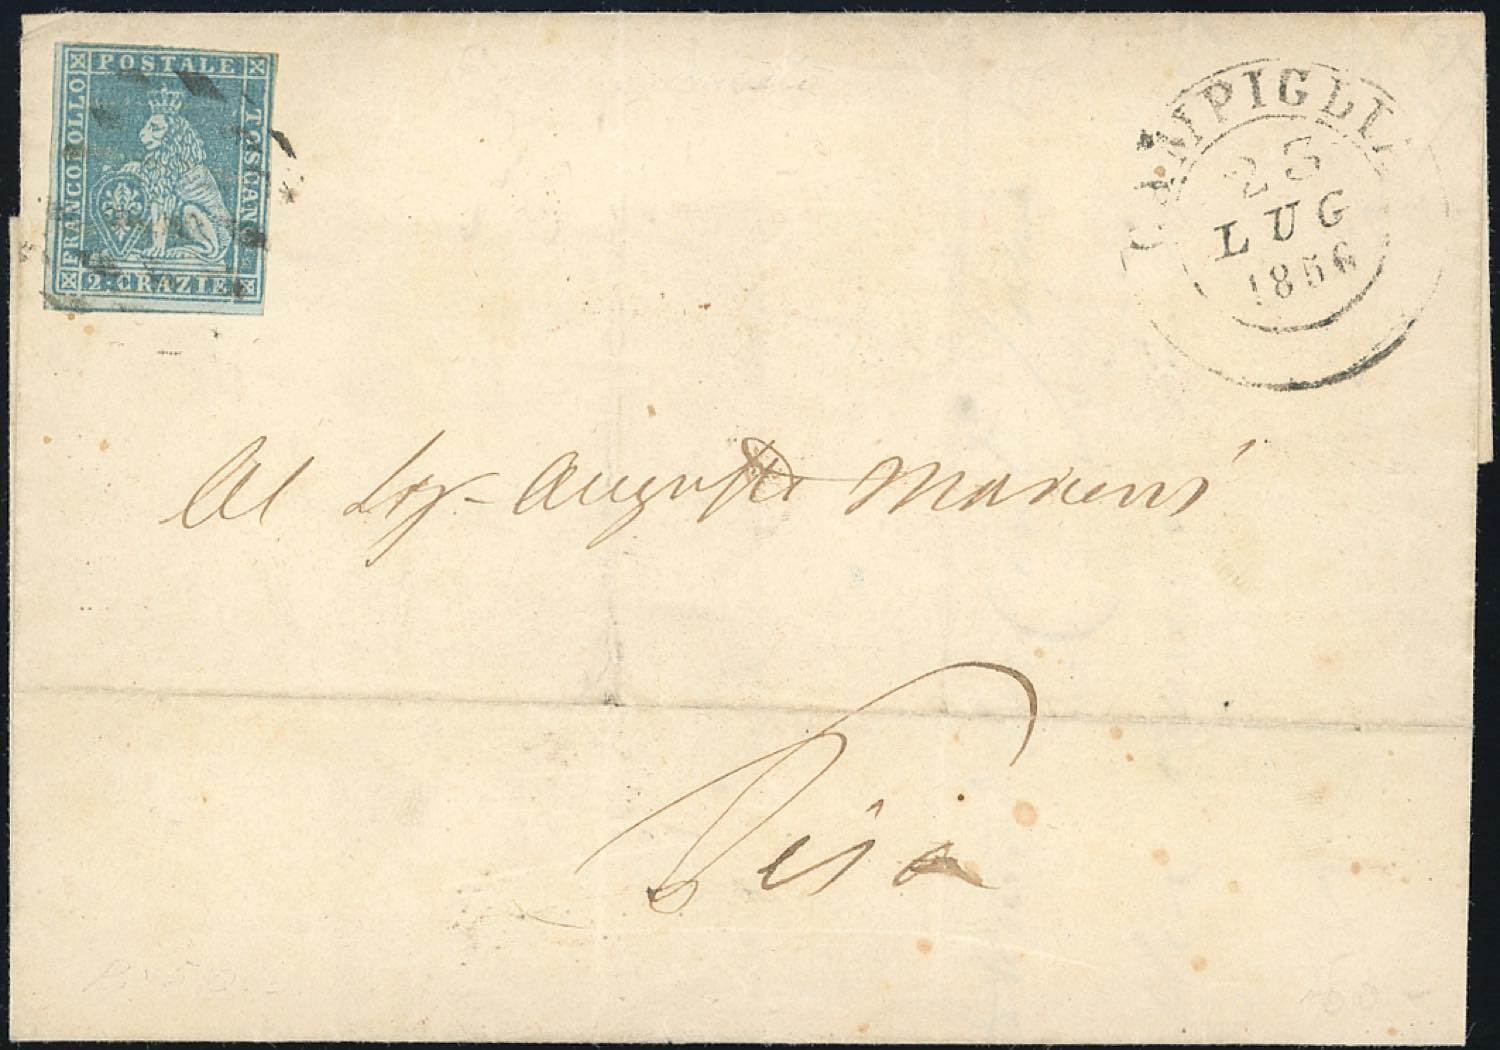 FRANCOBOLLO POSTALE TOSCANO
2 CRAZIE
CAMPIGLIA
23
LUG
1856
Al Sig. Augusto
Pisa